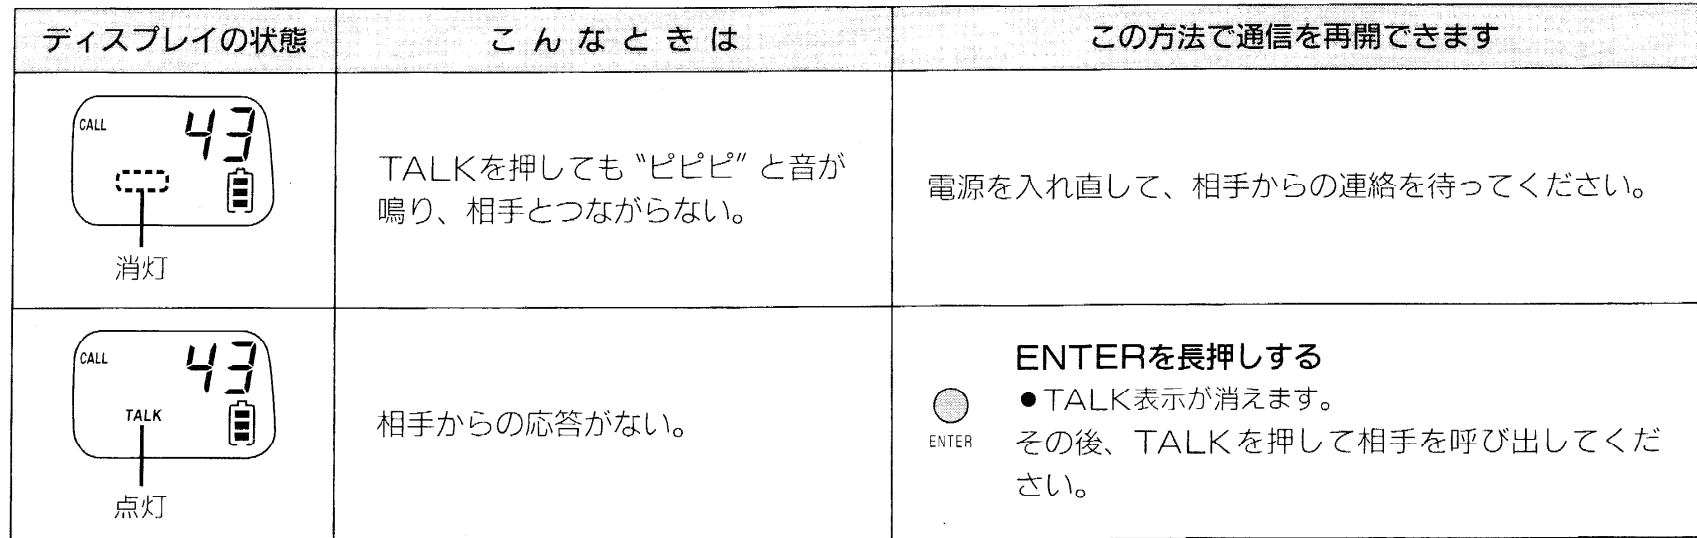 ディスプレイの状態
こんなときは
この方法で通信を再開できます
CALL
43
消灯
TALKを押しても〝ピピピ〞と音が
鳴り、相手とつながらない。
電源を入れ直して、相手からの連絡を待ってください。
CALL
43
TALK
点灯
相手からの応答がない。
ENTER
ENTERを長押しする
●TALK表示が消えます。
その後、TALKを押して相手を呼び出してくだ
さい。